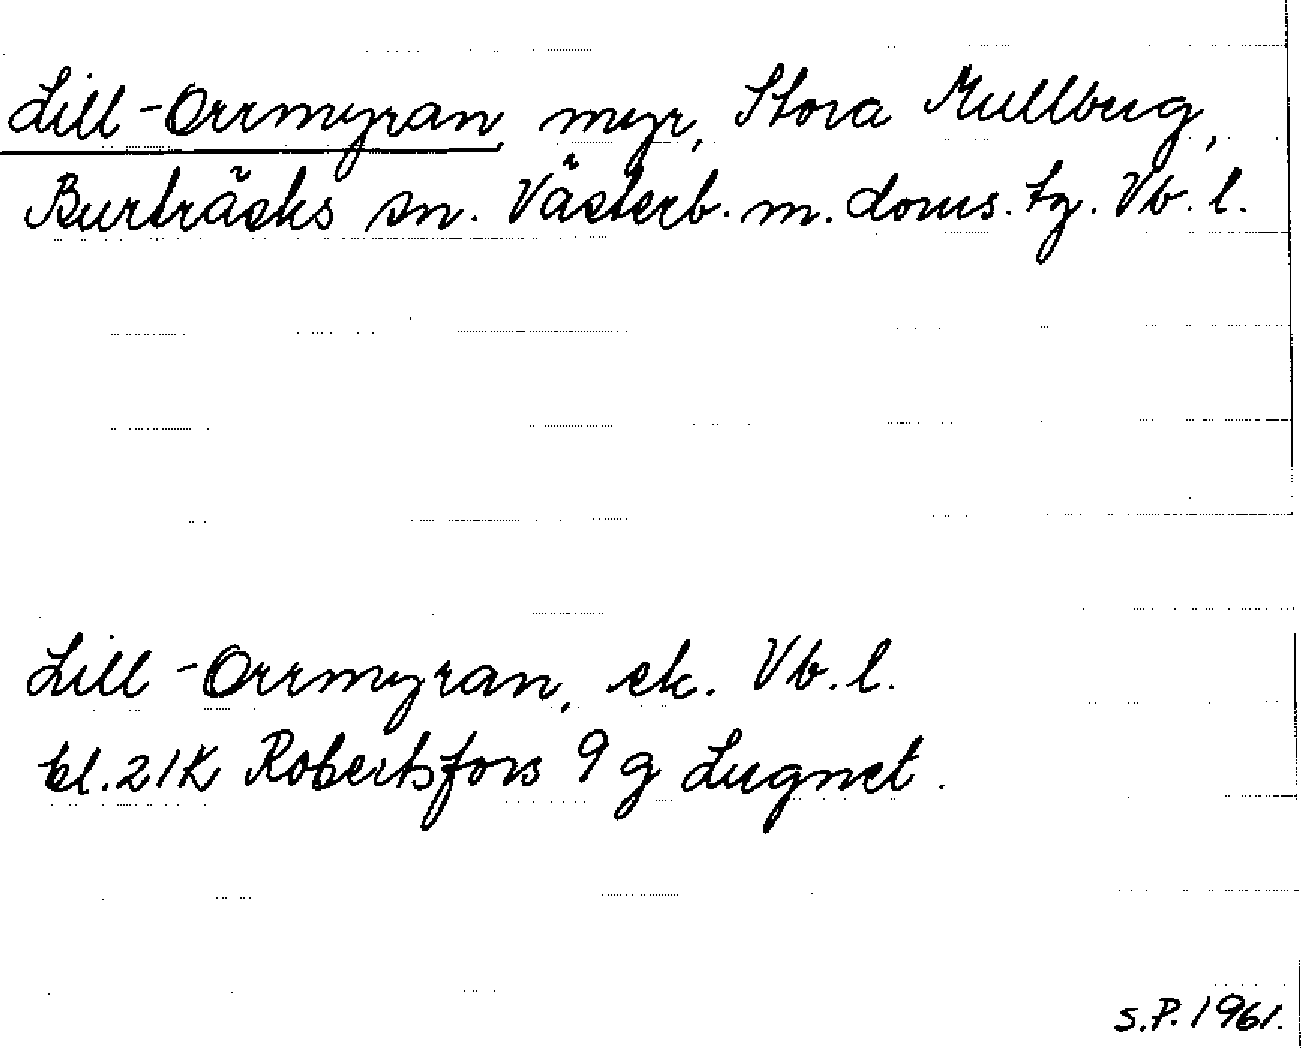 Lill-Orrmyran, myr, Stora Mullberg,
Burträsks sn. Västerb. m. doms. tg. Vb. l.
Lill-Orrmyran, ek. Vb. l.
bl. 21K Robertsfors 9 g Lugnet.
S.P. 1961.